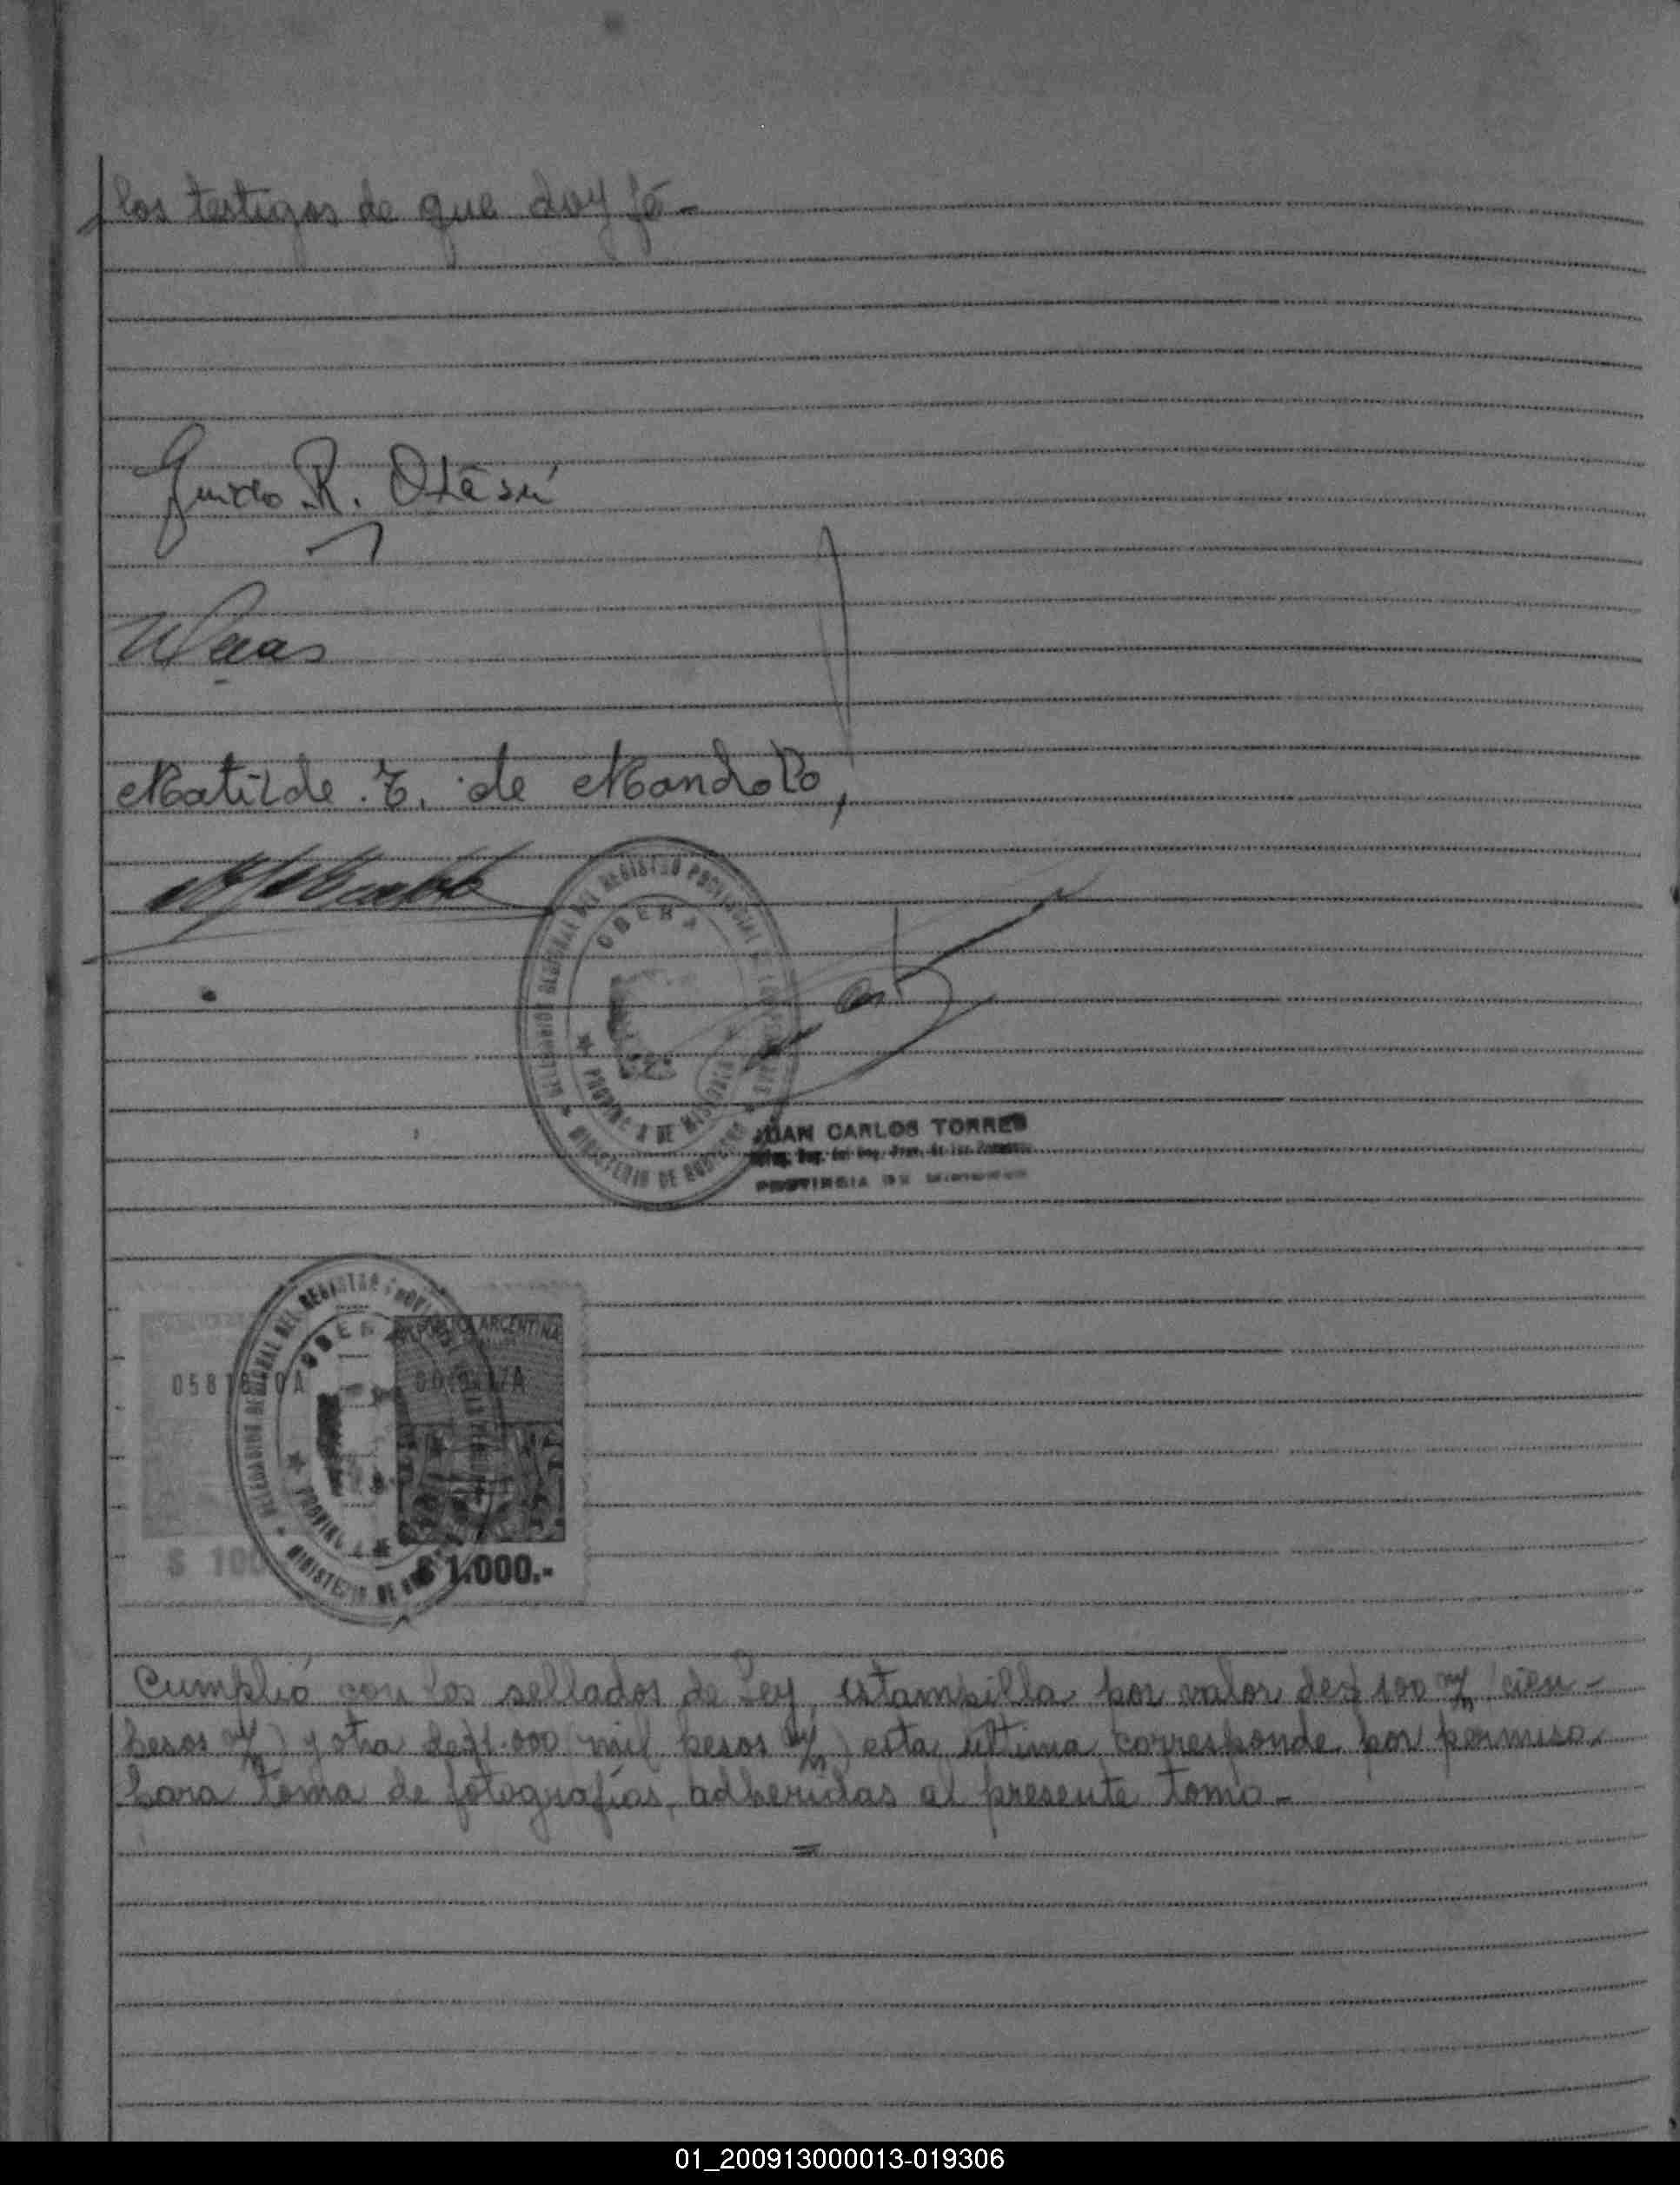 los testigos de que doy fé -
Guido R.
Matilde . Z. de Mandolo,
DELEGACION REGIONAL DEL REGISTRO PROVINCIAL DE LAS PERSONAS
OBERA
PROVINCIA DE MISIONES
MINISTERIO DE GOBIERNO
JUAN CARLOS TORRES
PROVINCIA DE MISIONES
DELEGACION REGIONAL DEL REGISTRO PROVINCIAL
OBERA
PROVINCIA DE
MINISTERIO DE
REPUBLICA ARGENTINA
$ 100
$ 1.000.-
Cumplió con los sellados de Ley, estampilla por valor de $ 100 m/n (cien -
pesos m/n) y otra de $1.000 (mil pesos m/n) esta última corresponde por permiso
para toma de fotografías, adheridas al presente tomo -
01_200913000013-019306